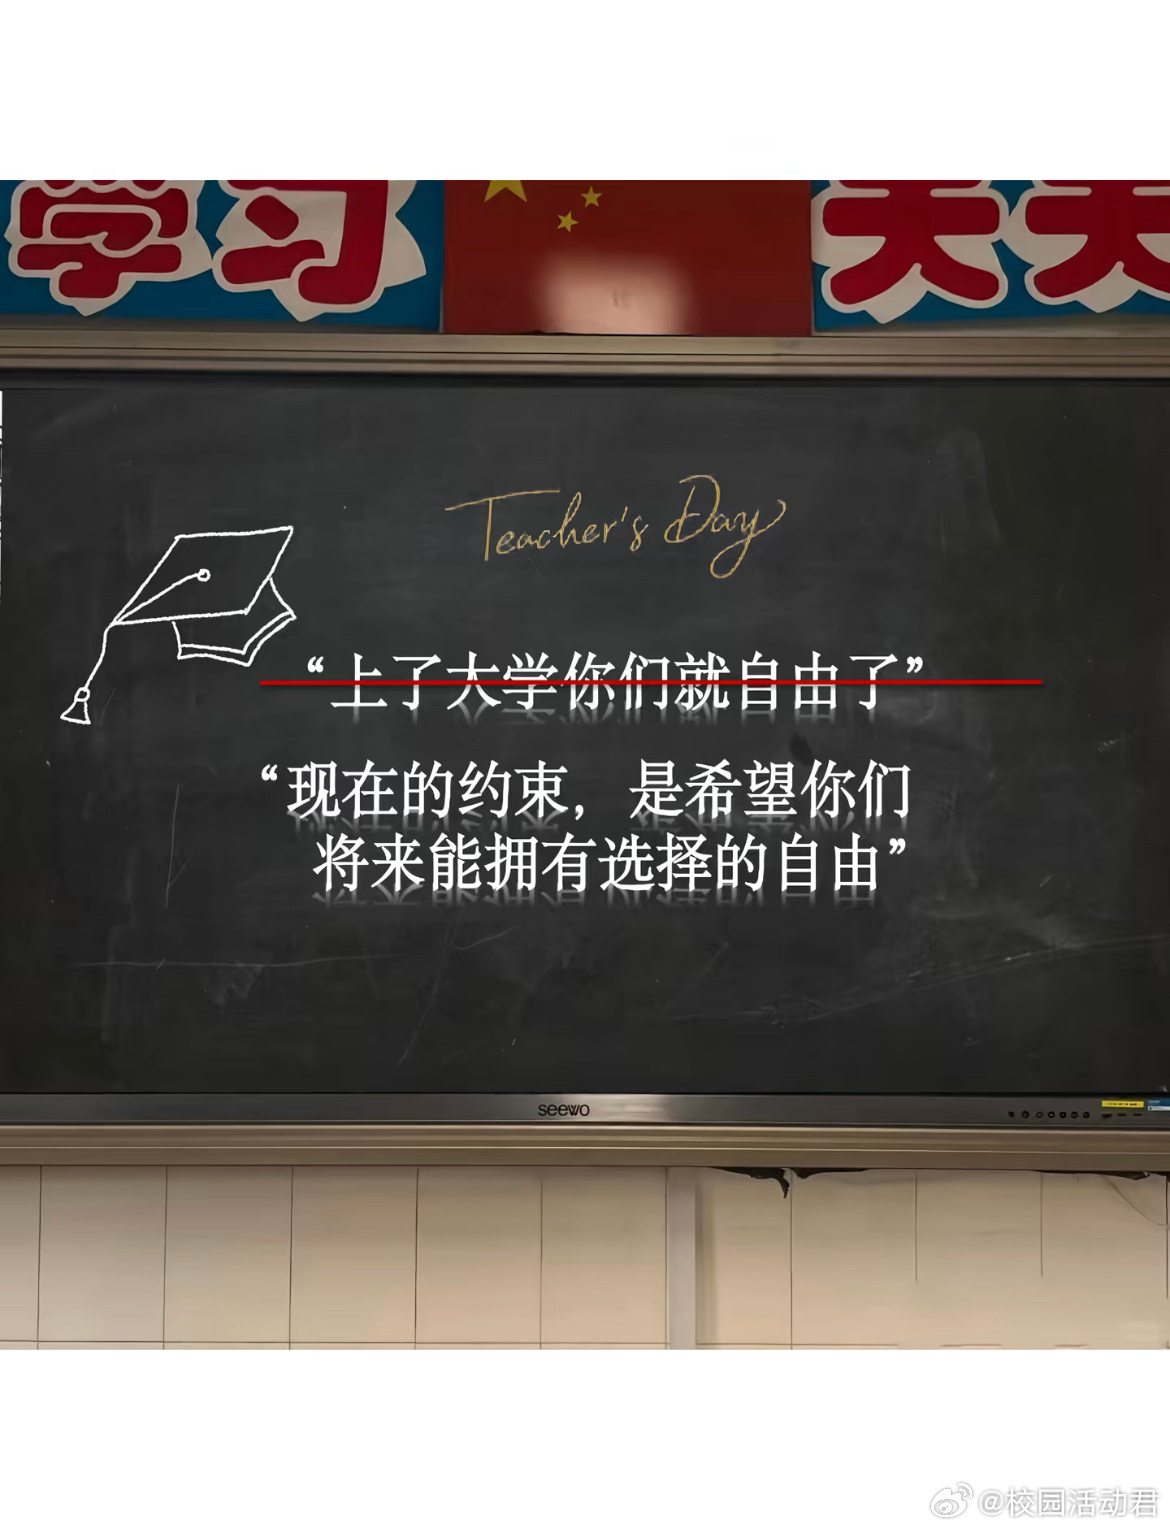 学习
天天
Teacher's Day
“上了大学你们就自由了”
“现在的约束，是希望你们
将来能拥有选择的自由”
seewo
@校园活动君